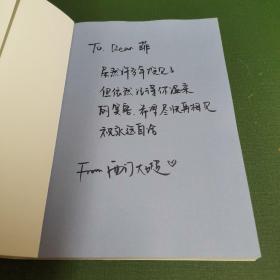 To Dear 菲
虽然许多年没见了
但依然记得你温柔
的笑容.希望尽快再相见
祝永远自在
From 西门大嫂♡